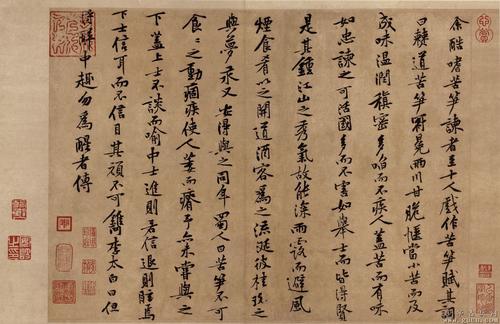 余酷嗜苦笋諫者至十人戲作苦笋賦其詞
曰僰道苦笋冠冕兩川甘脆愜當小苦而反
成味溫潤縝密多啗而不疾人蓋苦而有味
如忠諫之可活國多而不害如舉士而皆得賢
是其鍾江山之秀氣故能深雨露而避風
煙食肴以之開道酒客為之流涎彼桂玫之
與夢汞又安得與之同年蜀人曰苦笋不可
食〻之動痼疾使人萎而瘠予亦未嘗與之
下蓋上士不談而喻中士進則若信退則眩焉
下士信耳而不信目其頑不可鐫李太白曰但
得醉中趣勿為醒者傳